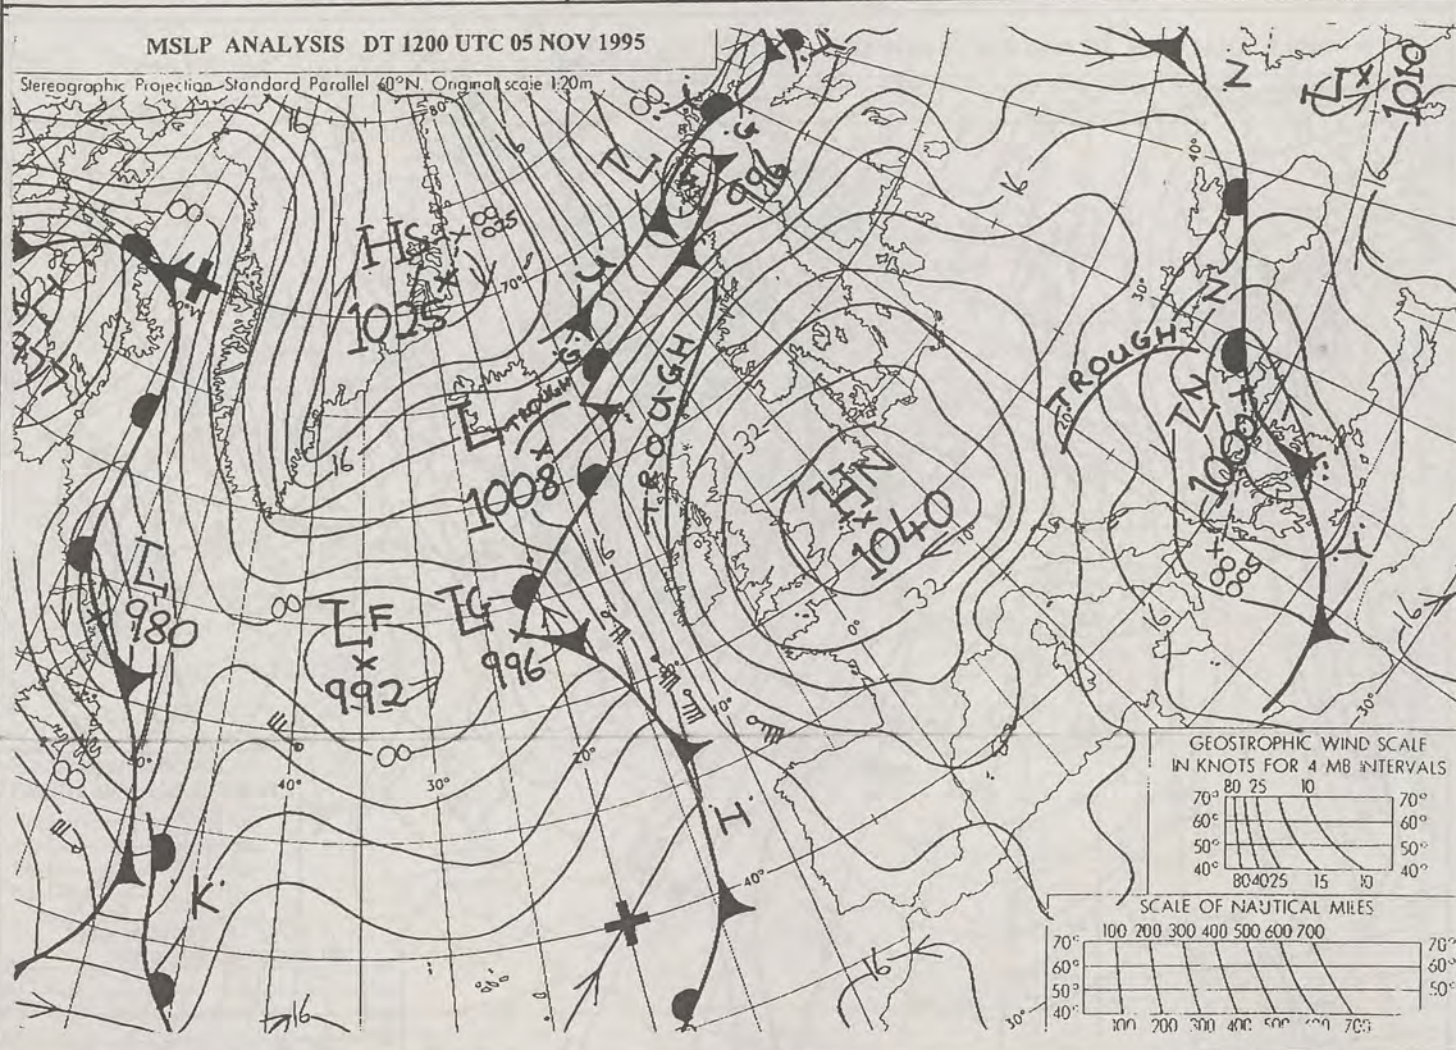 MSLP ANALYSIS DT 1200 UTC 05 NOV 1995
Stereographic Projection Standard Parallel 60°N. Original scale 1:20m
16
80°
00
00
HS
00
025
1025
70°
16
L
996
N
L
1010
16
40°
30°
N
TROUGH
TROUGH
TROUGH
LN
1000
20°
L
1008
32
HN
H
1040
10°
0°
32
00
005
16
16
L
980
00
LF
992
LG
996
50°
10°
20°
30°
40°
00
00
K
H
40°
16
16
30°
30°
GEOSTROPHIC WIND SCALE
IN KNOTS FOR 4 MB INTERVALS
80 25 10
70° 70°
60° 60°
50° 50°
40° 40°
80 40 25 15 10
SCALE OF NAUTICAL MILES
100 200 300 400 500 600 700
70° 70°
60° 60°
50° 50°
40°
100 200 300 400 500 600 700